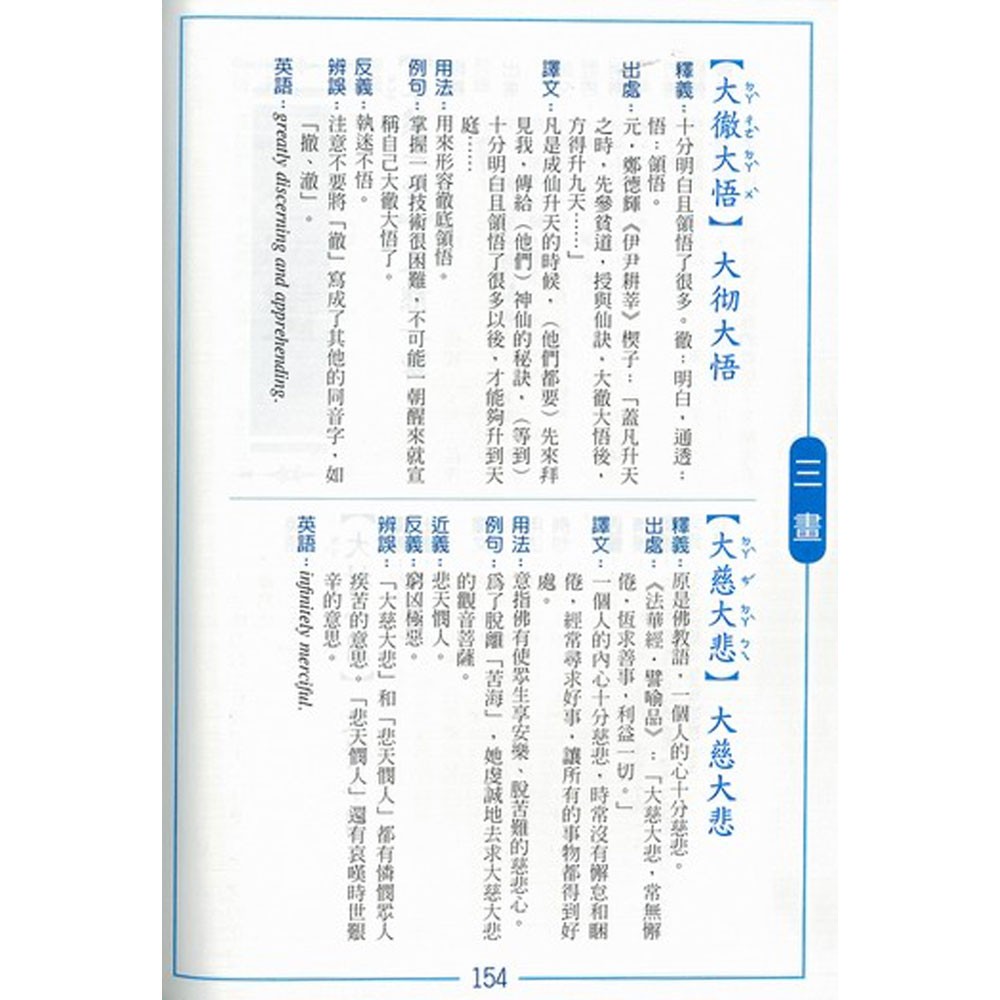 三畫
【大徹大悟】 大彻大悟
ㄉㄚˋ ㄔㄜˋ ㄉㄚˋ ㄨˋ
釋義：十分明白且領悟了很多。徹：明白，通透；
悟：領悟。
出處：元．鄭德輝《伊尹耕莘》楔子：「蓋凡升天
之時，先參貧道，授與仙訣，大徹大悟後，
方得升九天……」
譯文：凡是成仙升天的時候，（他們都要）先來拜
見我，傳給（他們）神仙的秘訣，（等到）
十分明白且領悟了很多以後，才能夠升到天
庭……
用法：用來形容徹底領悟。
例句：掌握一項技術很困難，不可能一朝醒來就宣
稱自己大徹大悟了。
反義：執迷不悟。
辨誤：注意不要將「徹」寫成了其他的同音字，如
「撤、澈」。
英語：greatly discerning and apprehending.
【大慈大悲】 大慈大悲
ㄉㄚˋ ㄘˊ ㄉㄚˋ ㄅㄟ
釋義：原是佛教語，一個人的心十分慈悲。
出處：《法華經．譬喻品》：「大慈大悲，常無懈
倦，恆求善事，利益一切。」
譯文：一個人的內心十分慈悲，時常沒有懈怠和睏
倦，經常尋求好事，讓所有的事物都得到好
處。
用法：意指佛有使眾生享安樂、脫苦難的慈悲心。
例句：為了脫離「苦海」，她虔誠地去求大慈大悲
的觀音菩薩。
近義：悲天憫人。
反義：窮凶極惡。
辨誤：「大慈大悲」和「悲天憫人」都有憐憫眾人
疾苦的意思。「悲天憫人」還有哀嘆時世艱
辛的意思。
英語：infinitely merciful.
154